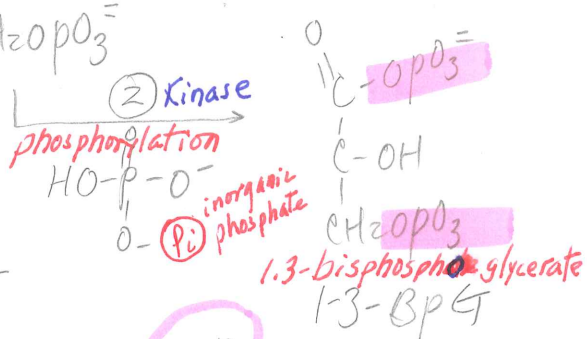 H2OPO3=
② Kinase
phosphorylation
O
HO-P-O-
O-
Pi inorganic
phosphate
O
C-OPO3=
C-OH
CH2OPO3
1.3-bisphosphoglycerate
1-3-BPG